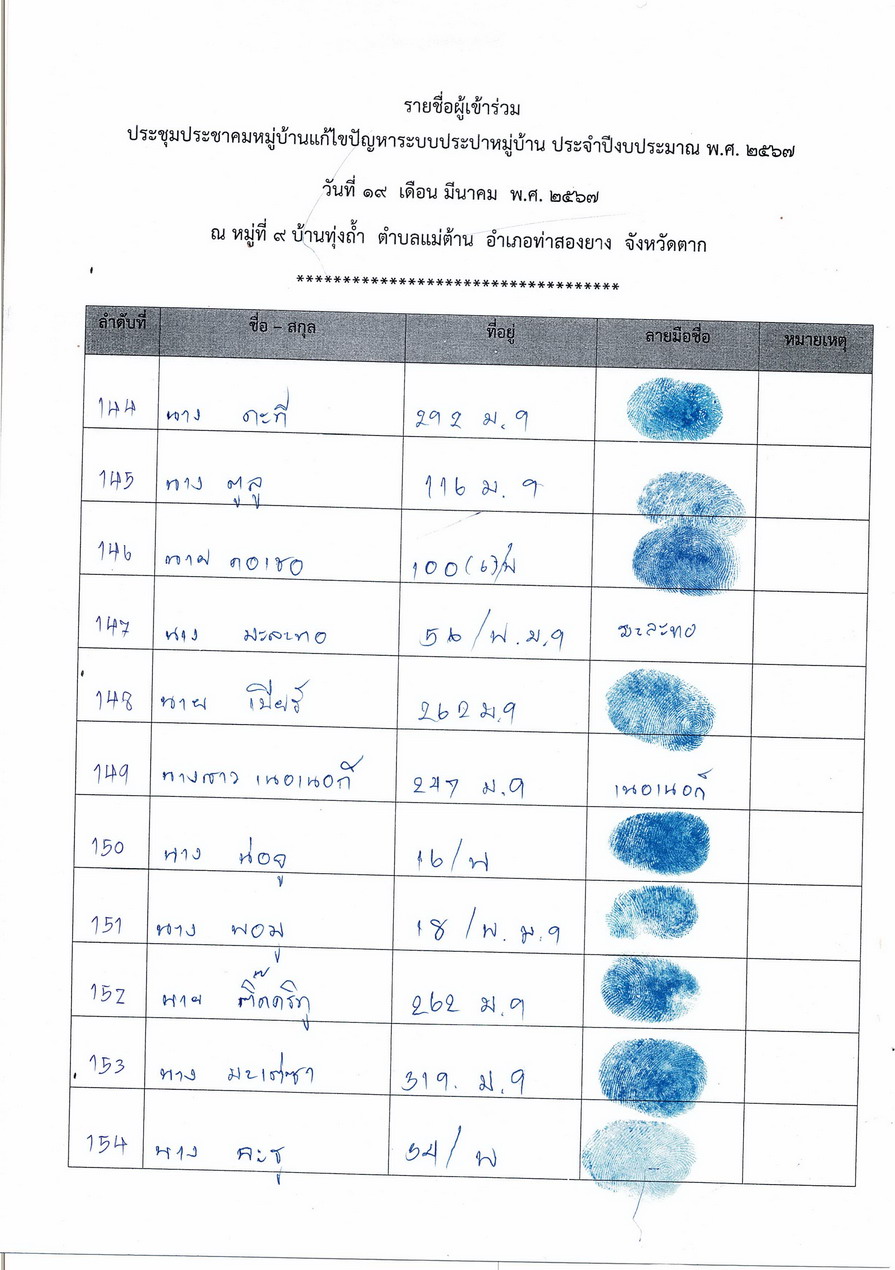 รายชื่อผู้เข้าร่วม
ประชุมประชาคมหมู่บ้านแก้ไขปัญหาระบบประปาหมู่บ้าน ประจำปีงบประมาณ พ.ศ. ๒๕๖๗
วันที่ ๑๙ เดือน มีนาคม พ.ศ. ๒๕๖๗
ณ หมู่ที่ ๙ บ้านทุ่งถ้ำ ตำบลแม่ต้าน อำเภอท่าสองยาง จังหวัดตาก
***********************************
ลำดับที่ ชื่อ – สกุล ที่อยู่ ลายมือชื่อ หมายเหตุ
144 นาง กะที่ 292 ม.9
145 นาง ตูลู 116 ม. 9
146 นาย 100(6)/พ
147 นาง มะละทอ 56 /พ.ม.9 มะละทอ
148 นาย เบียร์ 262 ม.9
149 นางสาว เนอเนอก์ 247 ม.9 เนอเนอก์
150 นาง น่อจู 16/พ
151 นาง พอมู 18 /พ. ม.9
152 นาย 262 ม.9
153 นาง 319. ม.9
154 นาง 54/ พ